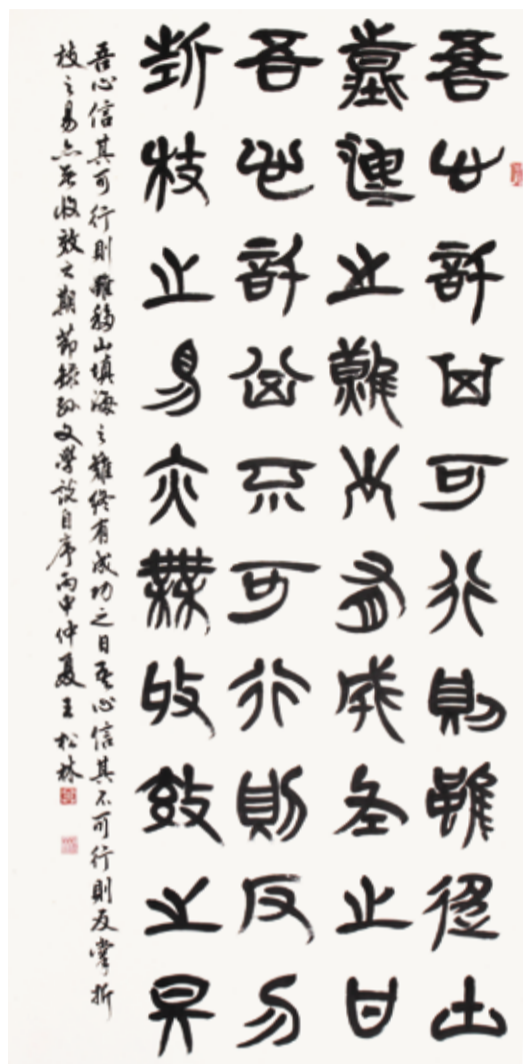 吾心信其可行則雖移山
填海之難終有成功之日
吾心信其不可行則反掌
折枝之易亦無收效之期
吾心信其可行則雖移山填海之難終有成功之日吾心信其不可行則反掌折
枝之易亦無收效之期節錄孫文學說自序丙申仲夏王松林